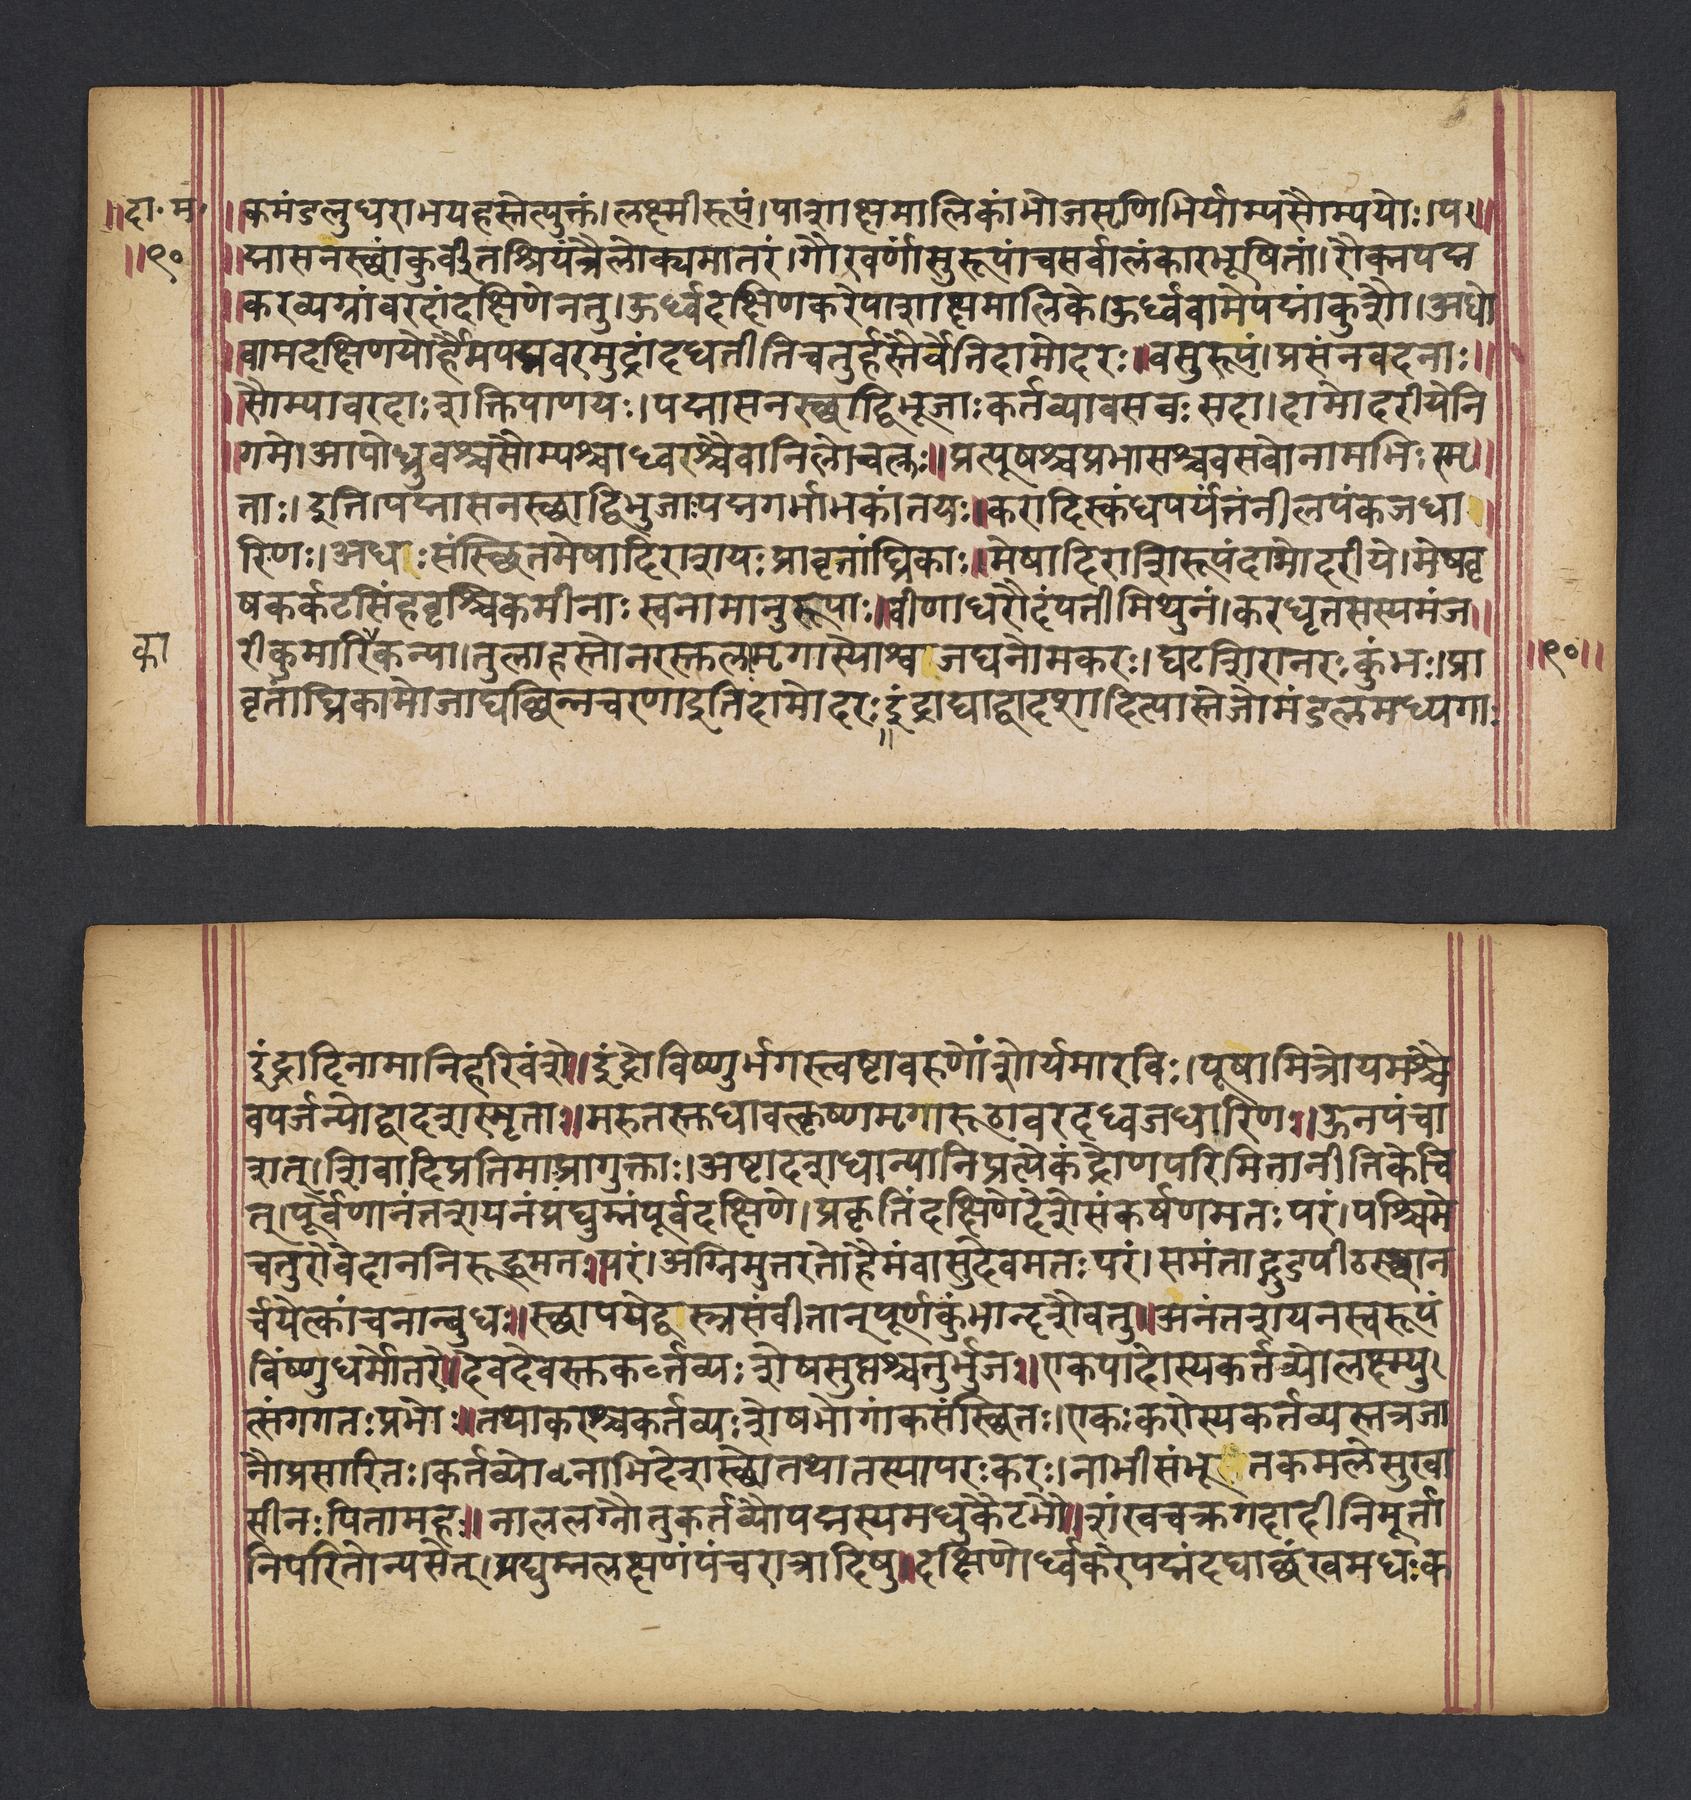 ॥दा॰म॰
॥९०
॥कमंडलुधराभयहस्तेत्युक्तं।लक्ष्मीरूपं।पाशाक्षमालिकांभोजसृणिभिर्याम्यसौम्ययोः।प॥
॥द्मासनस्थांकुर्वीतश्रियंत्रैलोक्यमातरं।गौरवर्णांसुरूपांचसर्वालंकारभूषितां।रौक्मपद्म
॥करव्यग्रांवरदांदक्षिणेनतु।ऊर्ध्वदक्षिणकरेपाशाक्षमालिके।ऊर्ध्ववामेपद्मांकुशौ।अधो
॥वामदक्षिणयोर्हैमपद्मवरमुद्रांदधतीतिचतुर्हस्तैर्वेतिदामोदरः॥वसुरूपं।प्रसंनवदनाः॥
॥सौम्यावरदाःशक्तिपाणयः।पद्मासनस्थाद्विभूजाःकर्तव्यावसवःसदा।दामोदरीयेनि
॥गमे।आपोध्रुवश्चसौम्यश्चाध्वरश्चैवानिलोचलः॥प्रत्यूषश्चप्रभासश्चवसवोनामभिःस्मृ॥
ताः।इति।पद्मासनस्थाद्विभुजाःपद्मगर्भाभकांतयः॥करादिस्कंधपर्यंतंनीलपंकजधा
रिणः।अधाःसंस्थितमेषादिराशयःप्रावृतांघ्रिकाः॥मेषादिराशिरूपंदामोदरीये।मेषवृ
षकर्कटसिंहवृश्चिकमीनाःस्वनामानुरूपाः॥वीणाधरौदंपतीमिथुनं।करधृतसस्यमंज॥
का
रीकुमारिकन्या।तुलाहस्तोनरस्तुला।मृगास्योश्वजघनोमकरः।घटशिरानरःकुंभः।प्रा
॥९०॥
वृतांघ्रिकामोजाघच्छिन्नचरणाइतिदामोदरःइंद्राद्याद्वादशादित्यास्तेजोमंडलमध्यगाः
इंद्रादिनामानिहरिवंशे॥इंद्रोविष्णुर्भगस्त्वष्टावरुणोंशोर्यमारविः।पूषामित्रोयमश्चै
वपर्जन्योद्वादशस्मृताः॥मरुतस्तुधावत्कृष्णमृगारूढावरदध्वजधारिणः॥ऊनपंचा
शत्।शिवादिप्रतिमाप्रागुक्ताः।अष्टादशधान्यानिप्रत्येकंद्रोणपरिमितानीतिकेचि
त्।पूर्वेणानंतशयनंप्रद्युम्नंपूर्वदक्षिणे।प्रकृतिंदक्षिणेदेशेसंकर्षणमतःपरं।पश्चिमे
चतुरोवेदाननिरुद्धमतःपरं।अग्निमुत्तरतोहैमंवासुदेवमतःपरं।समंताद्गुडपीठस्थान
र्चयेत्कांचनान्बुधः॥स्थापयेद्वस्त्रसंवीतान्पूर्णकुंभान्दशैवतु॥अनंतशयनस्वरूपं
विष्णुधर्मोत्तरे॥देवदेवस्तुकर्त्तव्यःशेषसुप्तश्चतुर्भुजः॥एकपादोस्यकर्तव्योलक्ष्म्यु
त्संगगतःप्रभोः॥तथाकरश्चकर्तव्यःशेषभोगांकसंस्थितः।एकःकरोस्यकर्तव्यस्तत्रजा
नौप्रसारितः।कर्तव्योनाभिदेशस्थोतथातस्यापरःकरः।नाभीसंभूतकमलेसुखा
सीनःपितामहः॥नाललग्नौतुकर्तव्यौपद्मस्यमधुकैटभौ॥शंखचक्रगदादीनिमूर्ता
निपरितोन्यसेत्।प्रद्युम्नलक्षणंपंचरात्रादिषु॥दक्षिणोर्ध्वकरेपद्मंदद्याच्छंखमधःक